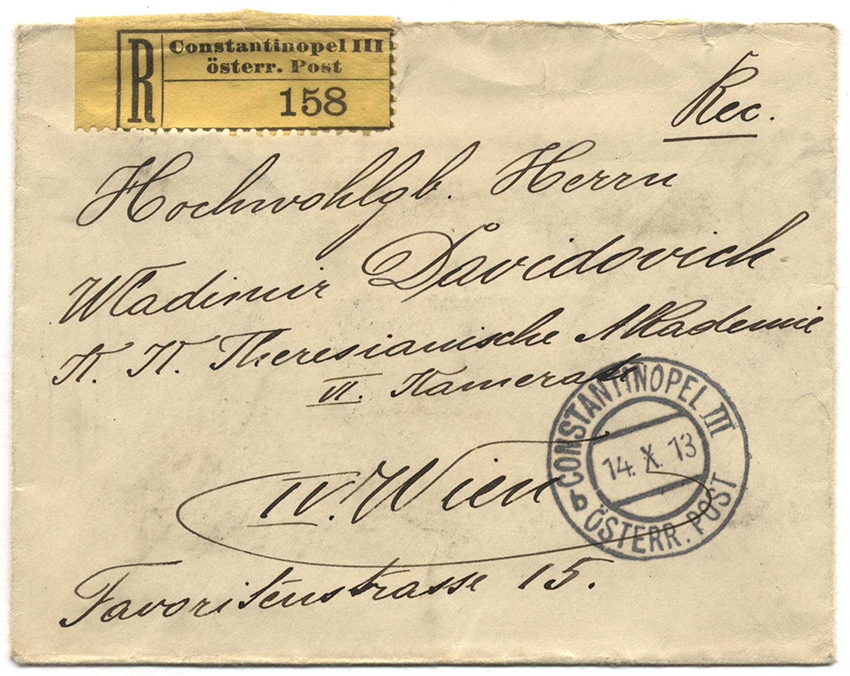 R
Constantinopel III
österr. Post
158
Rec.
Hochwohlgb. Herrn
Wladimir Davidovich
K. K. Theresianische Akademie
VI. Kamerate
IV. Wien
Favoritenstrasse 15.
CONSTANTINOPEL III
14. X. 13
b
ÖSTERR. POST